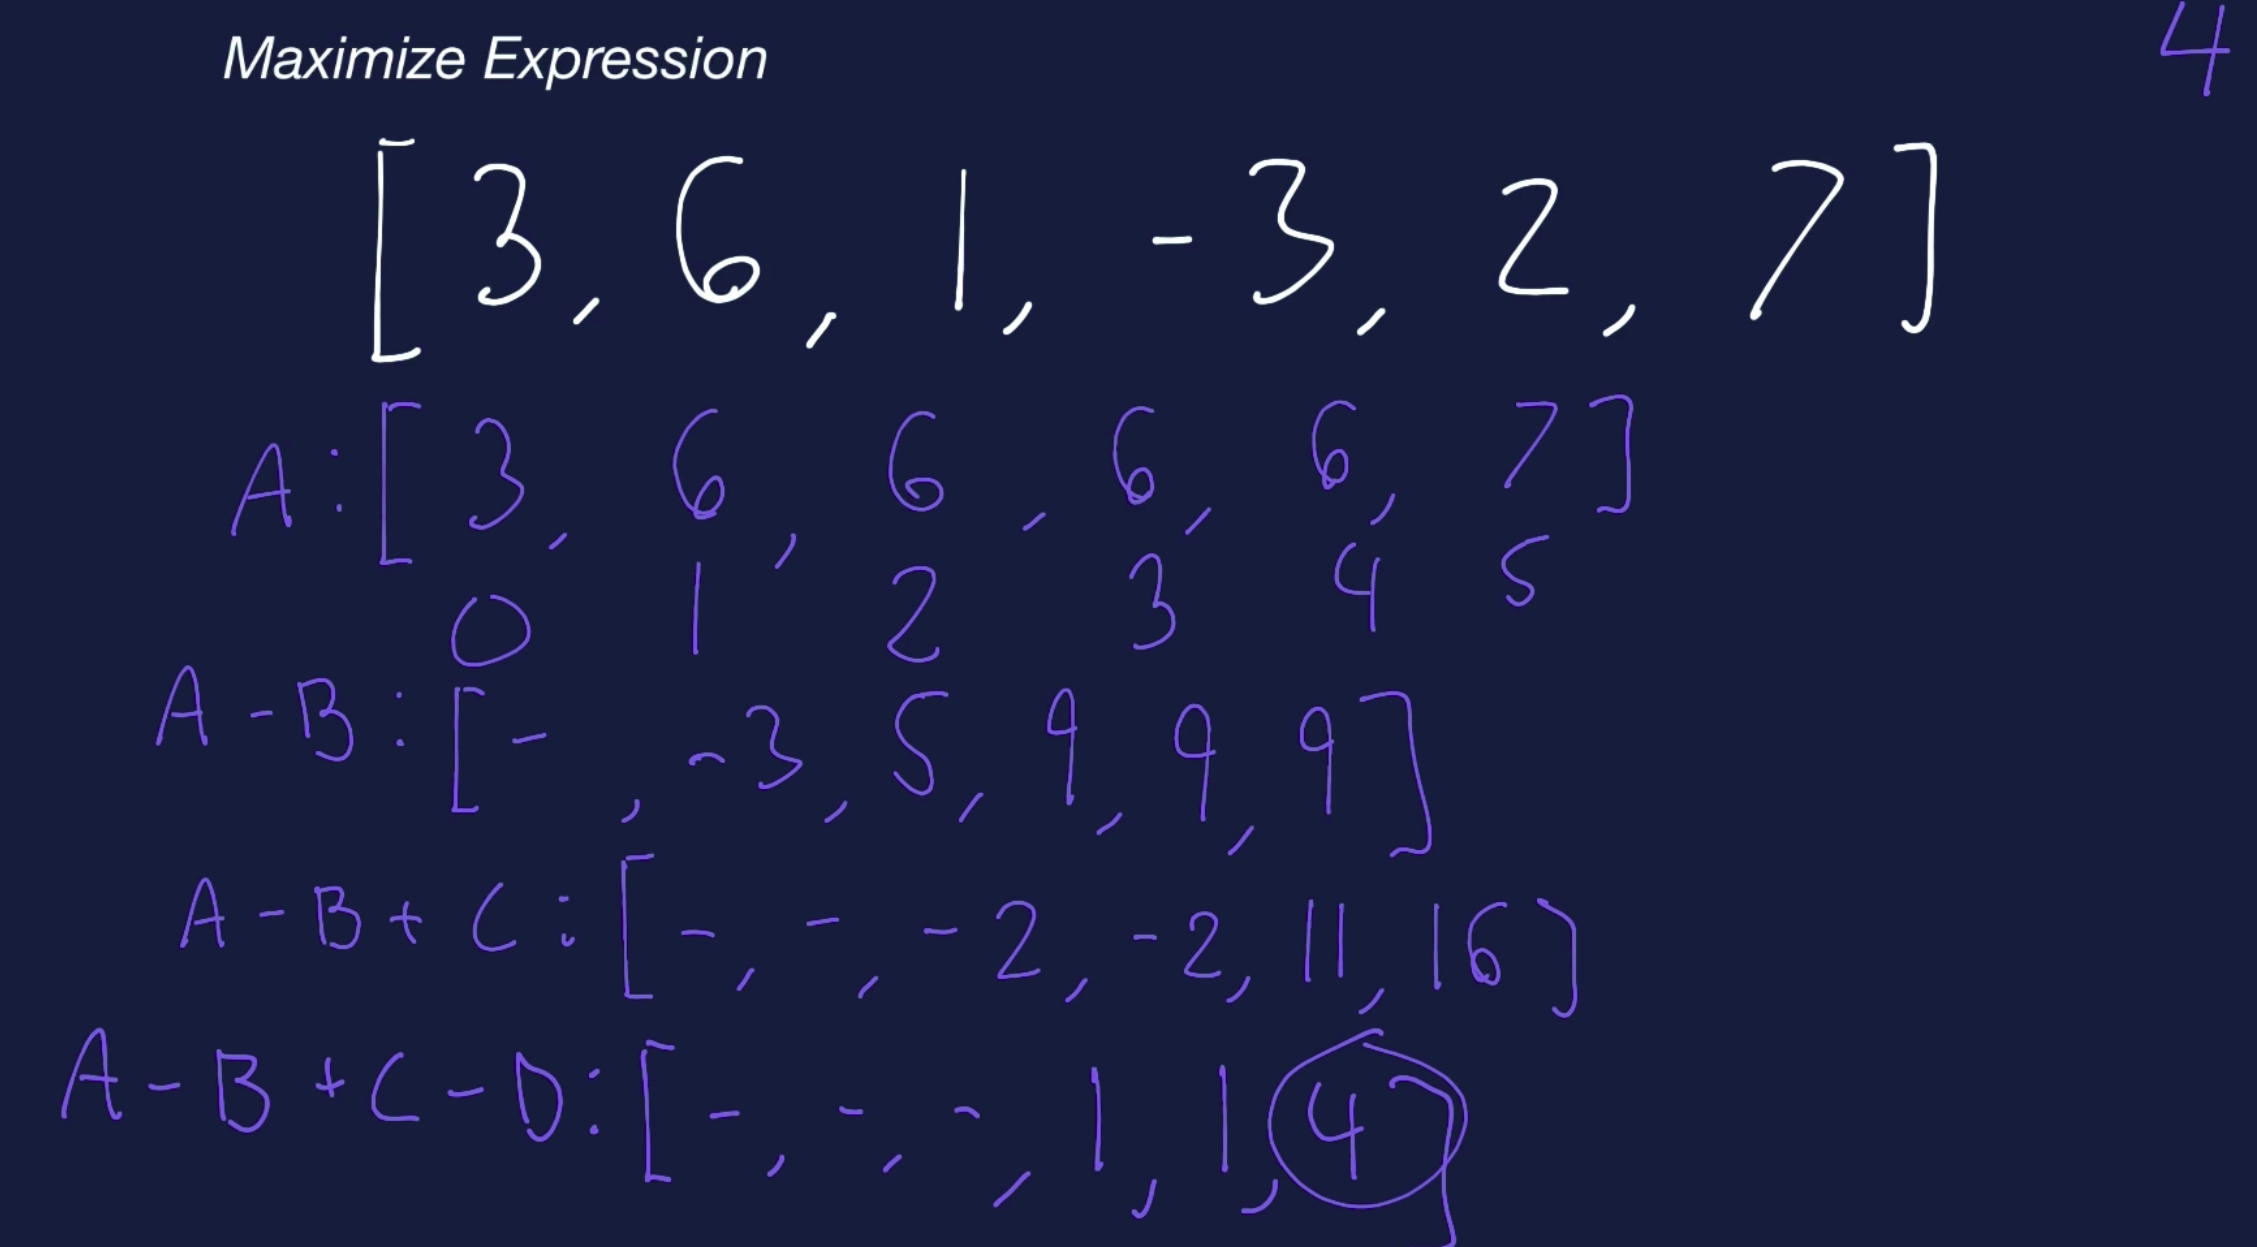 Maximize Expression
4
[3, 6, 1, -3, 2, 7]
A: [3, 6, 6, 6, 6, 7]
0 1 2 3 4 5
A-B: [-, -3, 5, 9, 9, 9]
A-B+C: [-, -, -2, -2, 11, 16]
A-B+C-D: [-, -, -, 1, 1, 4]